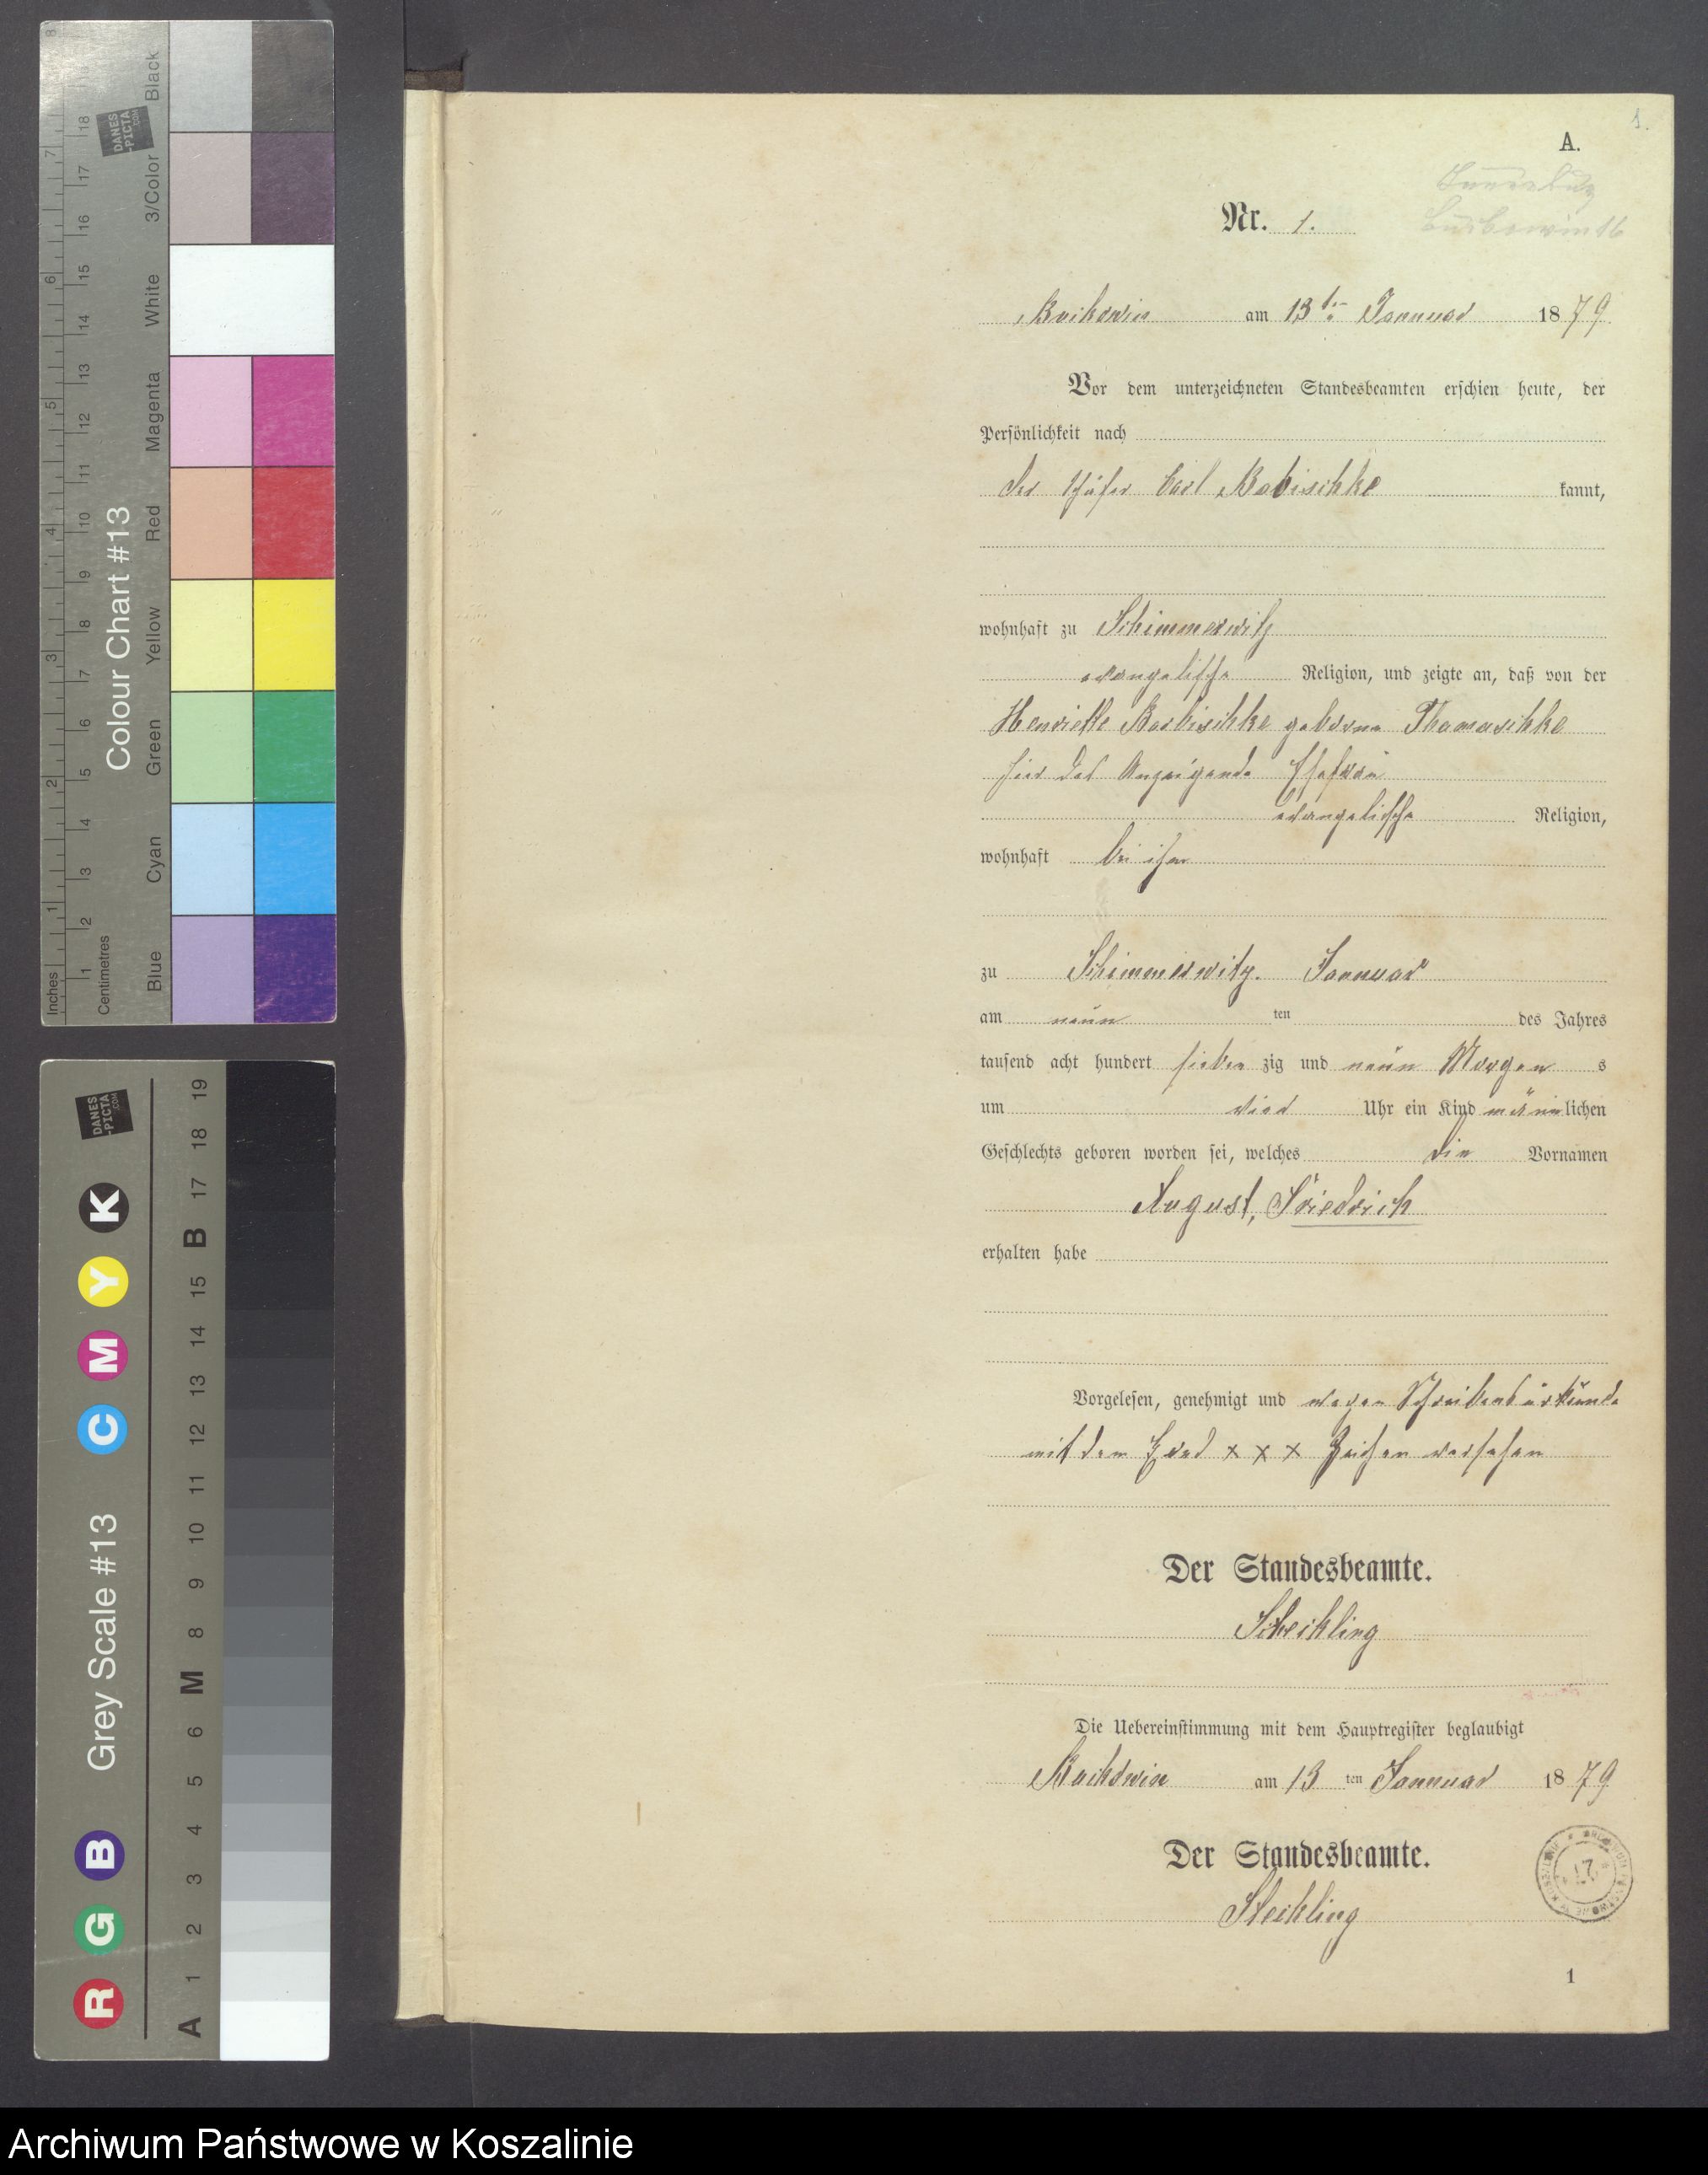 Inches
Centimetres
Colour Chart #13
Blue Cyan Green Yellow Red Magenta White 3/Color Black
1 2 3 4 5 6 7 8
1 2 3 4 5 6 7 8 9 10 11 12 13 14 15 16 17 18
DANES
-PICTA
.COM
Grey Scale #13
R G B C M Y K
A 1 2 3 4 5 6 M 8 9 10 11 12 13 14 15 B 17 18 19
DANES
-PICTA
.COM
1.
A.
Nr. 1.
am 13ten Januar 1879.
Vor dem unterzeichneten Standesbeamten erschien heute, der
Persönlichkeit nach
der Schäfer Carl Babischke kannt,
wohnhaft zu Schimmerwitz
evangelische Religion, und zeigte an, daß von der
Henriette Babischke geborne Thomaschke
Ehefrau
evangelische Religion,
wohnhaft bei ihm
zu Schimmerwitz. Januar
am neun ten des Jahres
tausend acht hundert sieben zig und neun Morgen s
um vier Uhr ein Kind männlichen
Geschlechts geboren worden sei, welches die Vornamen
August, Friedrich
erhalten habe
Vorgelesen, genehmigt und wegen
mit dem xxx Zeichen versehen
Der Standesbeamte.
Die Uebereinstimmung mit dem Hauptregister beglaubigt
am 13 ten Januar 1879
Der Standesbeamte.
1
Archiwum Państwowe w Koszalinie